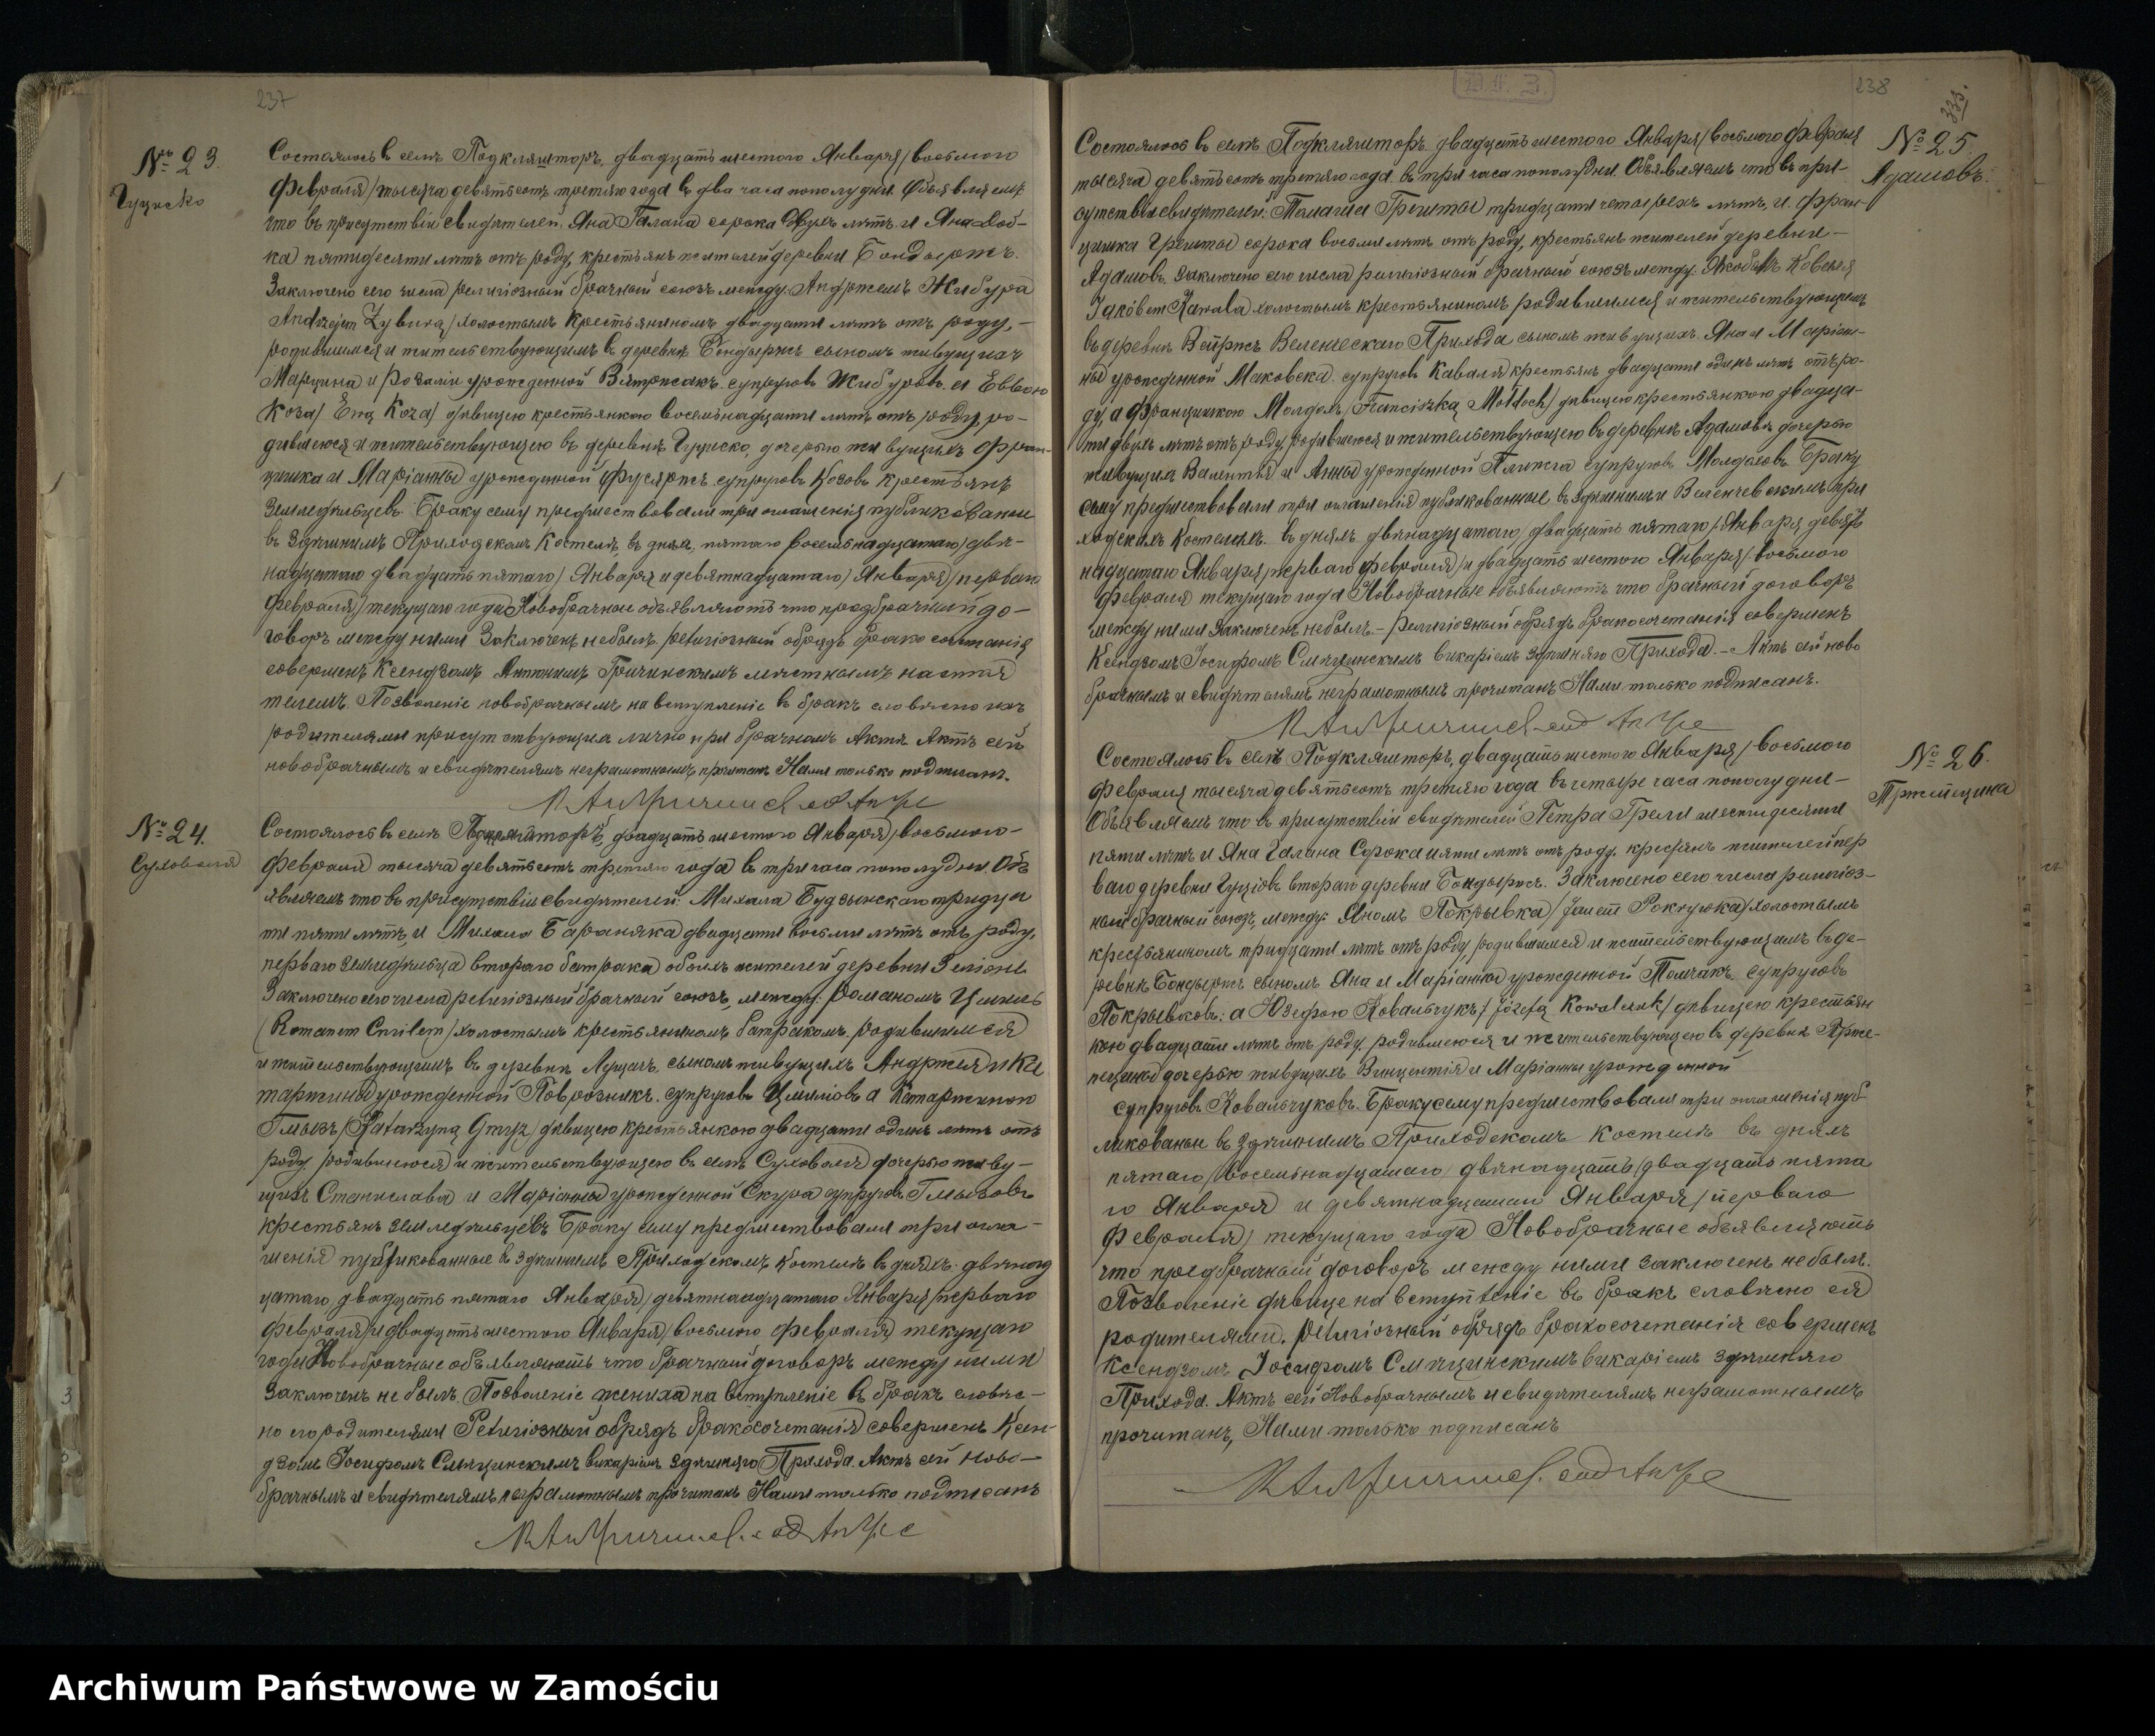 237
№ 23.
Гуциско
Состоялось в селѣ Подкляшторъ, двадцать шестого Января /восьмого
Февраля/ тысяча девятьсотъ третяго года въ два часа пополудни. Объявляемъ
что въ присутствіи свидѣтелей, Яна Галана сорока двухъ лѣтъ и Яна
ка пятидесяти лѣтъ отъ роду, крестьянъ жителей деревни Бондыржъ.
Заключено сего числа религіозный брачный союзъ между: Андржеемъ Жибура
Andrzejem Zyburą/ холостымъ крестьяниномъ двадцати лѣтъ отъ роду, –
родившимся и жительствующимъ въ деревнѣ Бондыржъ сыномъ живущихъ
Марцина и Розаліи урожденной супруговъ Жибуровъ и Евою
Коза/ Ewą Koza/ дѣвицею крестьянкою восемьнадцати лѣтъ отъ роду, ро-
дившеюся и жительствующею въ деревнѣ Гуциско, дочерью живущихъ Фран-
цишка и Маріанны урожденной супруговъ Козовъ крестьянъ
Земледѣльцевъ. Браку сему предшествовали три оглашенія публикованы
въ Здѣшнимъ Приходскомъ Костелѣ, въ дняхъ, пятаго /восемьнадцатаго/ двѣ-
надцатаго /двадцать пятаго/ Января и девятнадцатаго/ Января /перваго
Февраля/ текущаго года. Новобрачные объявляютъ что предбрачный до-
говоръ между ними Заключенъ небылъ. Религіозный обрядъ бракосочетанія
совершенъ Ксендзомъ Антонимъ Гричинскимъ мѣстнымъ настоя
телемъ. Позволеніе новобрачнымъ на вступленіе въ бракъ словесно ихъ
родителями присутствующихъ лично при брачномъ Актѣ. Актъ сей
новобрачнымъ и свидѣтелямъ неграмотнымъ прочитанъ Нами только подписанъ.
№ 24.
Суховоля
Состоялось въ селѣ Подкляшторъ, двадцать шестого Января /восьмого –
Февраля/ тысяча девятьсотъ третяго года въ три часа пополудни. Объ
являемъ что въ присутствіи свидѣтелей: Михала Будзынскаго тридца
ти пяти лѣтъ, и Михала Бараняка двадцати восьми лѣтъ отъ роду,
перваго земледѣльца втораго батрака обоихъ жителей деревни
Заключено сего числа религіозный брачный союзъ, между: Романомъ Цмиль
(Romanem Cmilem) холостымъ крестьяниномъ, батракомъ, родившимся
и жительствующимъ въ деревнѣ сыномъ живущихъ Андржея и Ка
таржины урожденной супруговъ Цмилювъ а Катаржиною
Гмызъ /Katarzyną Gmyz/ дѣвицею крестьянкою двадцати одинъ лѣтъ отъ
роду, родившеюся и жительствующею въ селѣ Суховоля дочерью живу-
щихъ Станислава и Маріанны урожденной Скура супруговъ Гмызовъ
крестьянъ земледѣльцевъ. Браку сему предшествовали три огла-
шенія публикованные въ Здѣшнимъ Приходскомъ Костелѣ въ дняхъ двѣнад
цатаго, двадцать пятаго Января/ девятнадцатаго Января /перваго
Февраля/ и двадцать шестого Января /восьмого Февраля/ текущаго
года Новобрачные объявляютъ что брачный договоръ между ними
Заключенъ не былъ. Позволеніе жениха на вступленіе въ бракъ словес-
но его родителями. Религіозный обрядъ бракосочетанія совершенъ Ксен
дзомъ Іосифомъ викаріемъ здѣшняго Прихода. Актъ сей ново-
брачнымъ и свидѣтелямъ неграмотнымъ прочитанъ Нами только подписанъ
238
№ 25.
Адамовъ.
Состоялось въ селѣ Подкляшторъ, двадцать шестого Января /восьмого Февраля
тысяча девятьсотъ третяго года въ три часа пополудни. Объявляемъ что въ при-
сутствіи свидѣтелей: Томаша тридцати четырехъ лѣтъ, и Фран-
цишка сорока восьми лѣтъ отъ роду, крестьянъ жителей деревни –
Адамовъ. Заключено сего числа религіозный брачный союзъ между: Якобемъ
Jakóbem Kawala холостымъ крестьяниномъ родившимся и жительствующимъ
въ деревнѣ Прихода сыномъ живущихъ Яна и Маріан-
ны урожденной Маковска супруговъ Каваля крестьянъ двадцати одинъ лѣтъ отъ ро-
ду, а Францишкою Молдохъ /Franciszką Mołdoch/ дѣвицею крестьянкою двадца-
ти двухъ лѣтъ отъ роду, родившеюся и жительствующею въ деревнѣ Адамовъ дочерью
живущихъ Валентія и Анны урожденной супруговъ Молдоховъ. Браку
сему предшествовали три оглашенія публикованные въ здѣшнимъ и при
ходскихъ Костелахъ. въ дняхъ двѣнадцатаго /двадцать пятаго/ Января, девят
надцатаго Января /перваго Февраля/ и двадцать шестого Января /восьмого
Февраля текущаго года Новобрачные объявляютъ что брачный договоръ
между ними Заключенъ небылъ. – Религіозный обрядъ бракосочетанія совершенъ
Ксендзомъ Іосифомъ викаріемъ здѣшняго Прихода. – Актъ сей ново
брачнымъ и свидѣтелямъ неграмотнымъ прочитанъ Нами только подписанъ.
№ 26.
Состоялось въ селѣ Подкляшторъ, двадцать шестого Января /восьмого
Февраля тысяча девятьсотъ третяго года въ четыре часа пополудни –
Объявляемъ что въ присутствіи свидѣтелей Петра шестидесяти
пяти лѣтъ и Яна Галана Сорока лѣтъ отъ роду, крестьянъ жителей пер
ваго деревни Гуціовъ втораго деревни Бондыржъ. Заключено сего числа религіоз-
ный брачный союзъ, между: Яномъ Покрывка /Janem Pokrywka/ холостымъ
крестьяниномъ тридцати лѣтъ отъ роду, родившимся и жительствующимъ въ де-
ревнѣ Бондыржъ сыномъ Яна и Маріанны урожденной супруговъ
Покрывковъ: а Юзефою Ковальчукъ / Józefą Kowalczuk/ дѣвицею крестьян
кою двадцати лѣтъ отъ роду, родившеюся и жительствующею въ деревнѣ
дочерью живущихъ Винцентія и Маріанны урожденной
супруговъ Ковальчуковъ. Браку сему предшествовали три оглашенія пуб
ликованы въ здѣшнимъ Приходскомъ Костелѣ въ дняхъ
пятаго /восемьнадцатаго/ двѣнадцать /двадцать пята
го Января и девятнадцатаго Января /перваго
Февраля/ текущаго года Новобрачные объявляютъ
что предбрачный договоръ между ними заключенъ небылъ.
Позволеніе дѣвице на вступленіе въ бракъ словесно ея
родителями. Религіозный обрядъ бракосочетанія совершенъ
Ксендзомъ Іосифомъ викаріемъ здѣшняго
Прихода. Актъ сей Новобрачнымъ и свидѣтелямъ неграмотнымъ
прочитанъ, Нами только подписанъ
Archiwum Państwowe w Zamościu